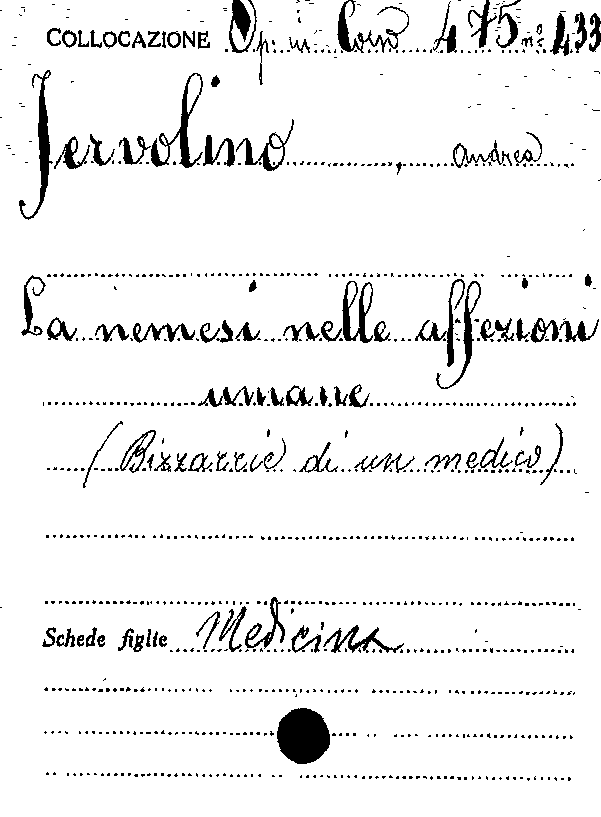 COLLOCAZIONE Op. in Coso 475 nº 433
Jervolino, Andrea
La nemesi nelle affezioni
umane
(Bizzarrie di un medico)
Schede figlie Medicina